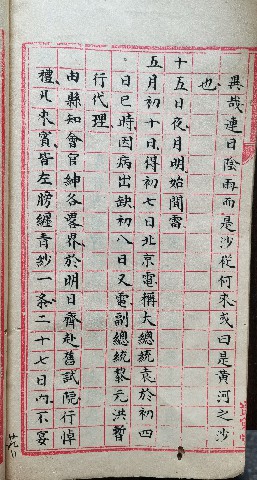 異哉連日陰雨而是沙從何來或曰是黃河之沙
也
十五日夜月明始聞雷
五月初十日得初七日北京電稱大總統袁於初四
日巳時因病出缺初八日又電副總統黎元洪暫
行代理
由縣知會官紳各畧界於明日齊赴舊試院行悼
禮凡來賓皆左膀纏青紗一条二十七日內不宴